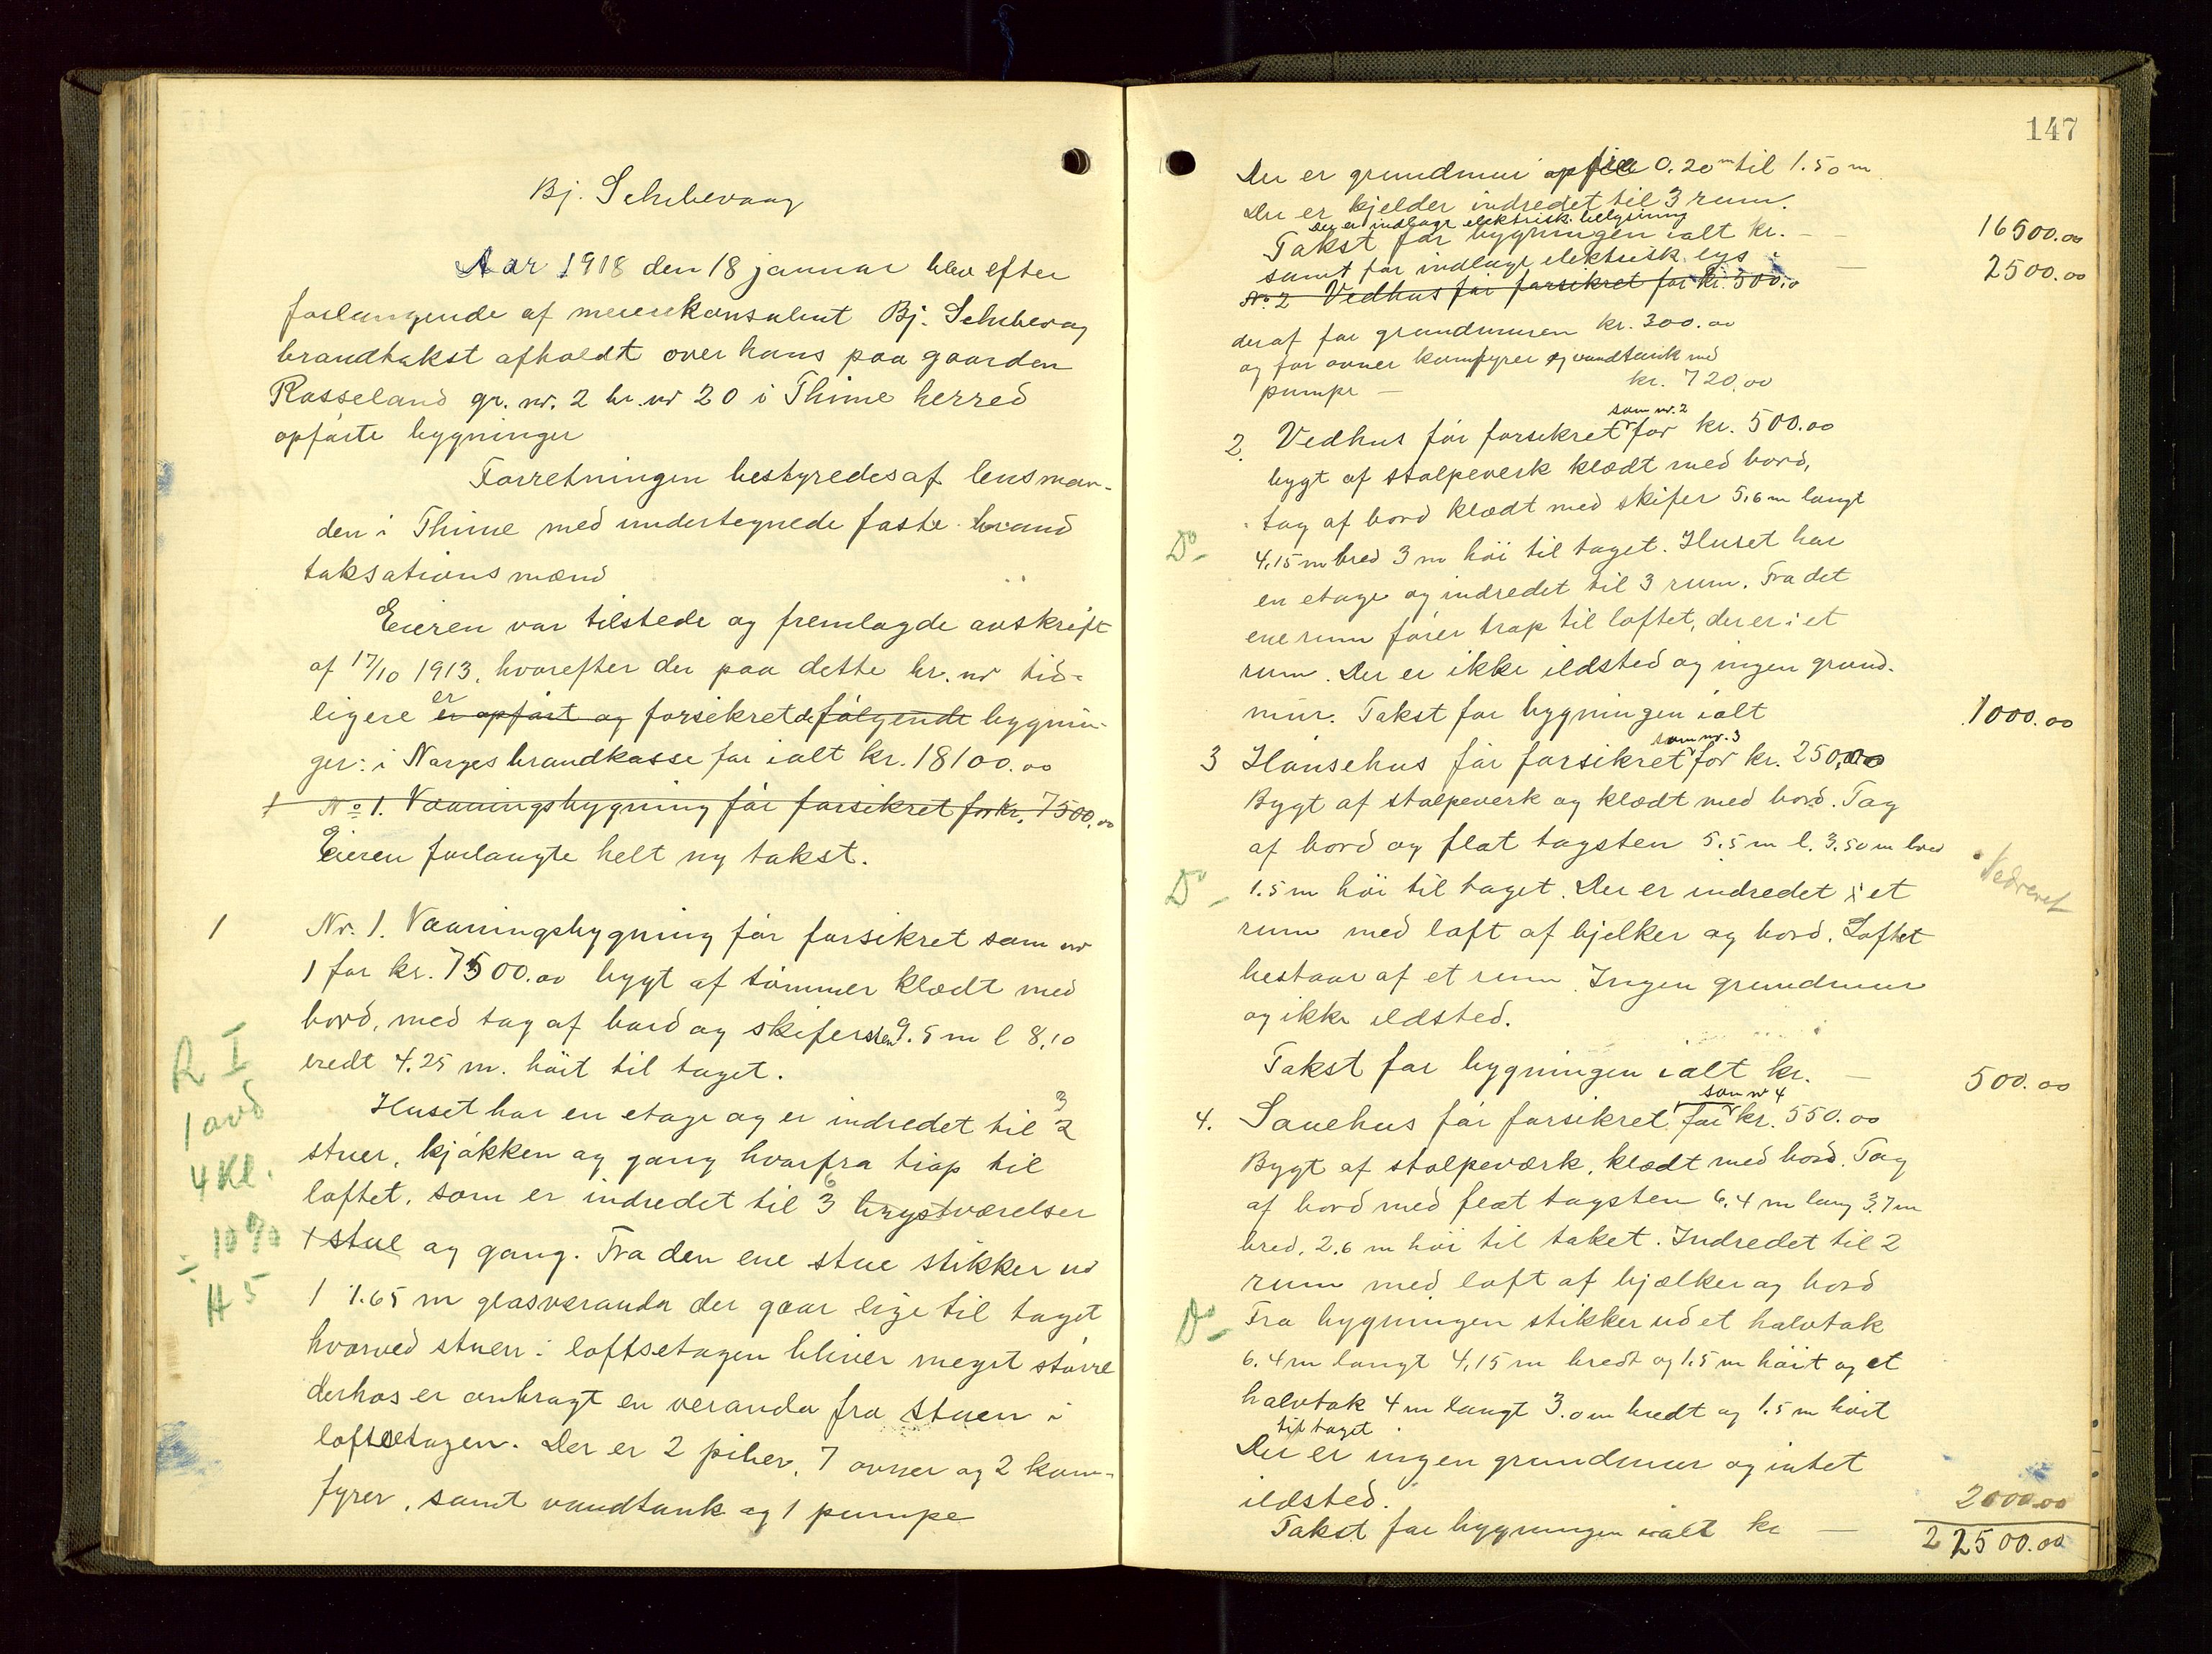 Bj. Sehubevaag
Aar 1918 den 18 januar blev efter
forlangende af meierikonsulent Bj. Sehubevag
brandtakst afholdt over hans paa gaarden
Rosseland gr. nr. 2 br. nr 20 i Thime herred
opførte bygninger
Forretningen bestyredes af lensman-
den i Thime med undertegnede faste brand
taksationsmænd
Eieren var tilstede og fremlagde avskrift
af 17/10 1913. hvorefter der paa dette br. nr tid-
ligere er er opført og forsikret de følgende bygnin-
ger: i Norges brandkasse for ialt kr. 18100.00
1 No 1. Vaaningsbygning før forsikret for kr. 7500.00
Eieren forlangte helt ny takst.
1 Nr. 1. Vaaningsbygning før forsikret som nr
1 for kr. 7500.00 bygt af tømmer klædt med
bord, med tag af bord og skifersten 9.5 m l 8.10
bredt 4.25 m. høit til taget.
R I
1 avd
4 Kl.
÷ 10%
H 5
Huset har en etage og er indredet til 2 3
stuer, kjøkken og gang hvorfra trap til
loftet, som er indredet til 3 6 brystværelser
1 stue og gang. Fra den ene stue stikker ud
1 1.65 m glasveranda der gaar lige til taget
hvorved stuen i loftsetagen bliver meget større
derhos er anbragt en veranda fra stuen i
loftsetagen. Der er 2 piber, 7 ovner og 2 kom-
fyrer, samt vandtank og 1 pumpe
147
Der er grundmur fra 0.20 m til 1.50 m
Der er kjelder indredet til 3 rum.
Der er indlagt elektrisk belysning
Takst for bygningen ialt kr. - - 16500.00
samt for indlagt elektrisk lys - 2500.00
No 2 Vedhus før forsikret for kr. 500.00
deraf for grundmuren kr. 300.00
og for ovner komfyrer og vandtank med
pumpe - kr. 720.00
2. Vedhus før forsikret som nr. 2 for kr. 500.00
bygt af stolpeverk klædt med bord,
tag af bord klædt med skifer 5.6 m langt
Do - 4.15 m bred 3 m høi til taget. Huset har
en etage og indredet til 3 rum. Fra det
ene rum fører trap til loftet, der er i et
rum. Der er ikke ildsted og ingen grund-
mur. Takst for bygningen ialt 1000.00
3 Hønsehus før forsikret som nr. 3 for kr. 250.00
Bygt af stolpeverk og klædt med bord. Tag
af bord og flat tagsten 5.5 m l. 3.50 m bred
Nedrevet
Do - 1.5 m høi til taget. Der er indredet i et
rum med loft af bjelker og bord. Loftet
bestaar af et rum. Ingen grundmur
og ikke ildsted.
Takst for bygningen ialt kr. - 500.00
4. Sauehus før forsikret som nr 4 for kr. 550.00
Bygt af stolpeværk, klædt med bord. Tag
af bord med flat tagsten 6.4 m lang 3.7 m
bred, 2.6 m høi til taket. Indredet til 2
rum med loft af bjælker og bord
Do - Fra bygningen stikker ud et halvtak
6.4 m langt 4.15 m bredt og 1.5 m høit og et
halvtak 4 m langt 3.0 m bredt og 1.5 m høit
til taget
Der er ingen grundmur og intet
ildsted. 2000.00
Takst for bygningen ialt kr - 22500.00